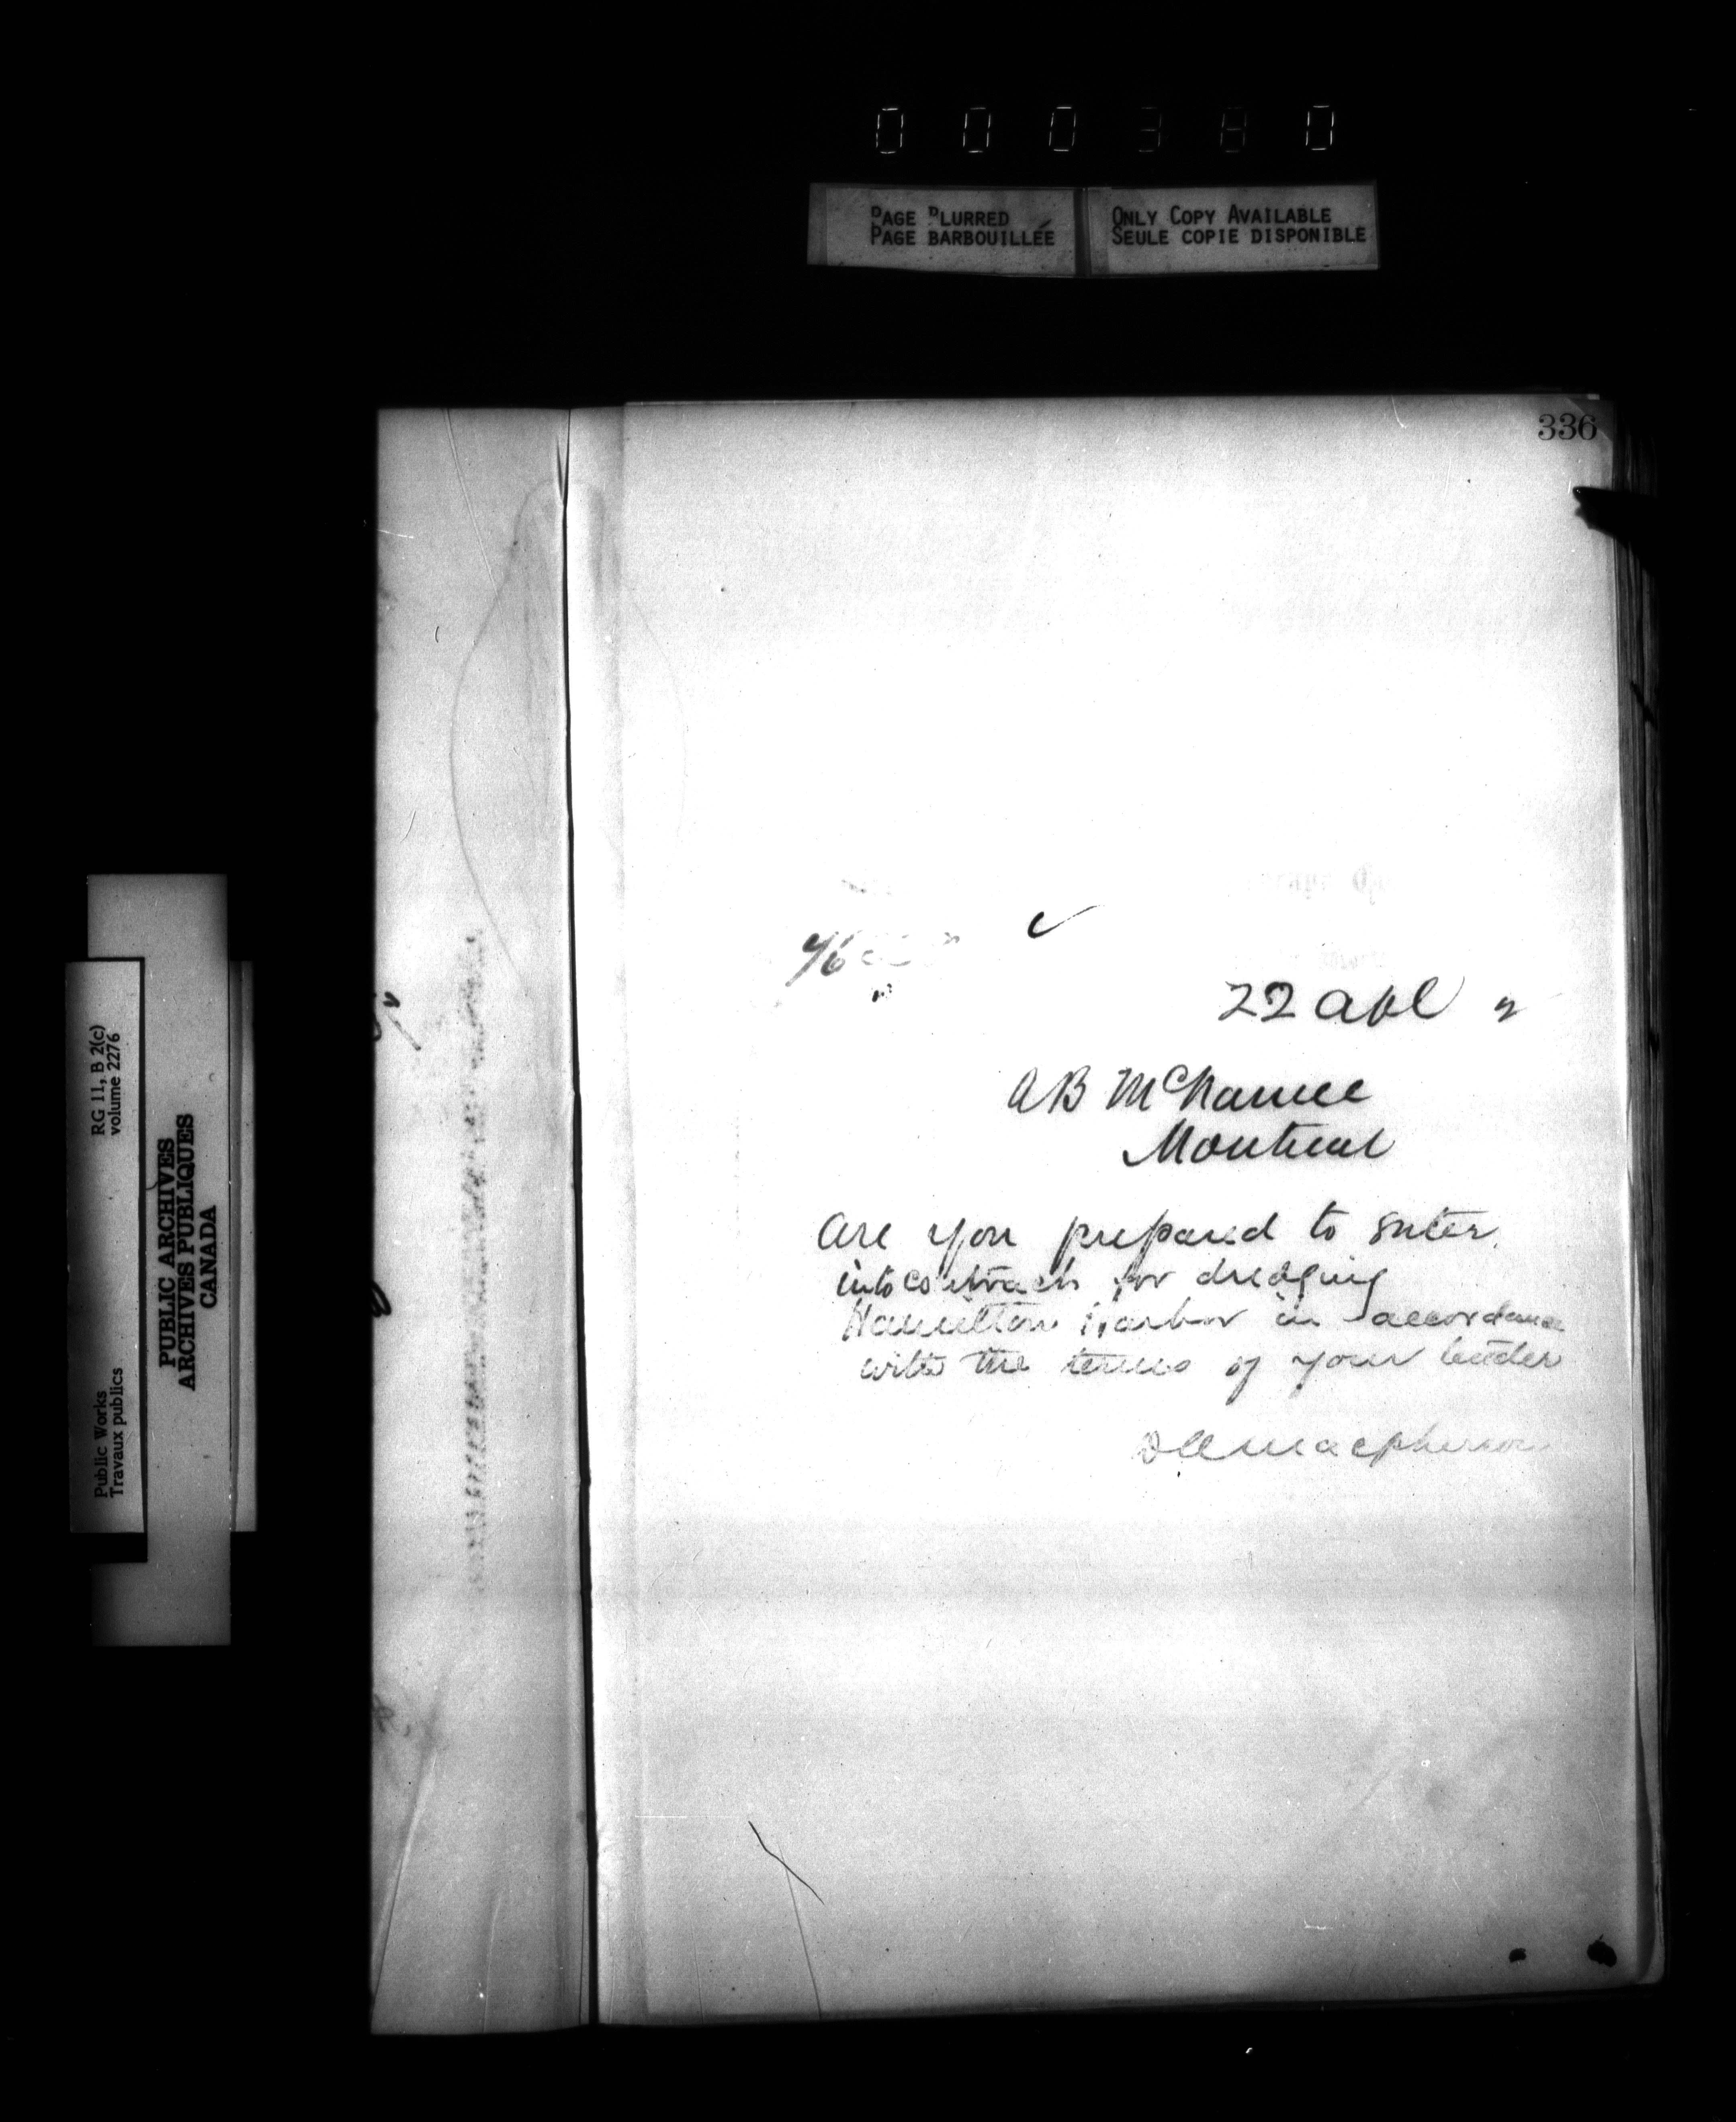 000380
PAGE BLURRED
PAGE BARBOUILLÉE
ONLY COPY AVAILABLE
SEULE COPIE DISPONIBLE
336
22 Apl
A B McNamee
Montreal
Are you prepared to enter
into contract for dredging
Hamilton Harbor in accordance
with the terms of your tender
Macpherson
RG 11, B 2(c)
volume 2276
Public Works
Travaux publics
PUBLIC ARCHIVES
ARCHIVES PUBLIQUES
CANADA